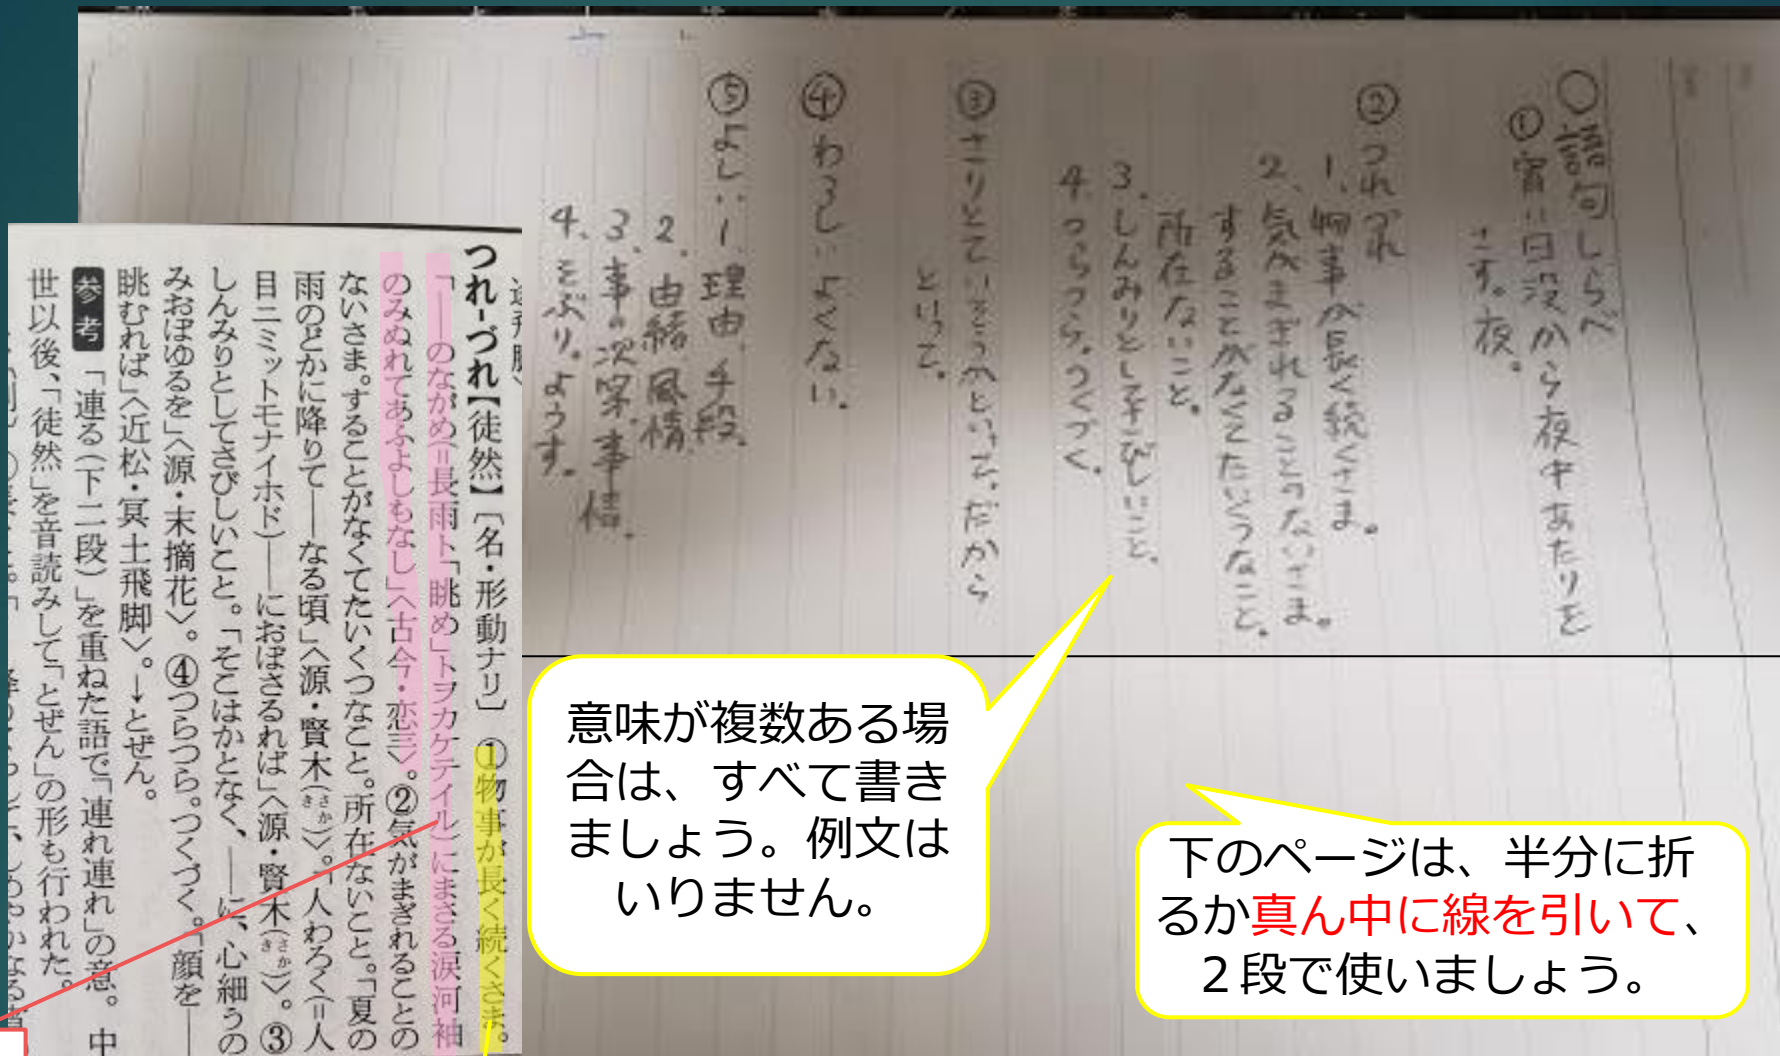 ○語句しらべ
①宵…日没から夜中あたりを
さす。夜。
②つれづれ
1、物事が長く続くさま。
2、気がまぎれることのないさま。
することがなくてたいくつなこと。
所在ないこと。
3、しんみりとしてさびしいこと。
4、つらつら。つくづく。
③さりとて…そうかといって。だから
といって。
④わろし…よくない。
⑤よし…1、理由、手段。
2、由緒、風情
3、事の次第、事情。
4、そぶり。ようす。
つれ‐づれ【徒然】〔名・形動ナリ〕①物事が長く続くさま。
「――のながめ(=長雨ト「眺め」トヲカケテイル)にまさる涙河袖
のみぬれてあふよしもなし」〈古今・恋三〉。②気がまぎれることの
ないさま。することがなくてたいくつなこと。所在ないこと。「夏の
雨のどかに降りて――なる頃」〈源・賢木(さかき)〉。「人わろく(=人
目ニミットモナイホド)――におぼさるれば」〈源・賢木(さかき)〉。③
しんみりとしてさびしいこと。「そこはかとなく、――に、心細うの
みおぼゆるを」〈源・末摘花〉。④つらつら。つくづく。「顔を――
眺むれば」〈近松・冥土飛脚〉。→とぜん。
参考「連る(下二段)」を重ねた語で「連れ連れ」の意。中
世以後、「徒然」を音読みして「とぜん」の形も行われた。
意味が複数ある場
合は、すべて書き
ましょう。例文は
いりません。
下のページは、半分に折
るか真ん中に線を引いて、
２段で使いましょう。